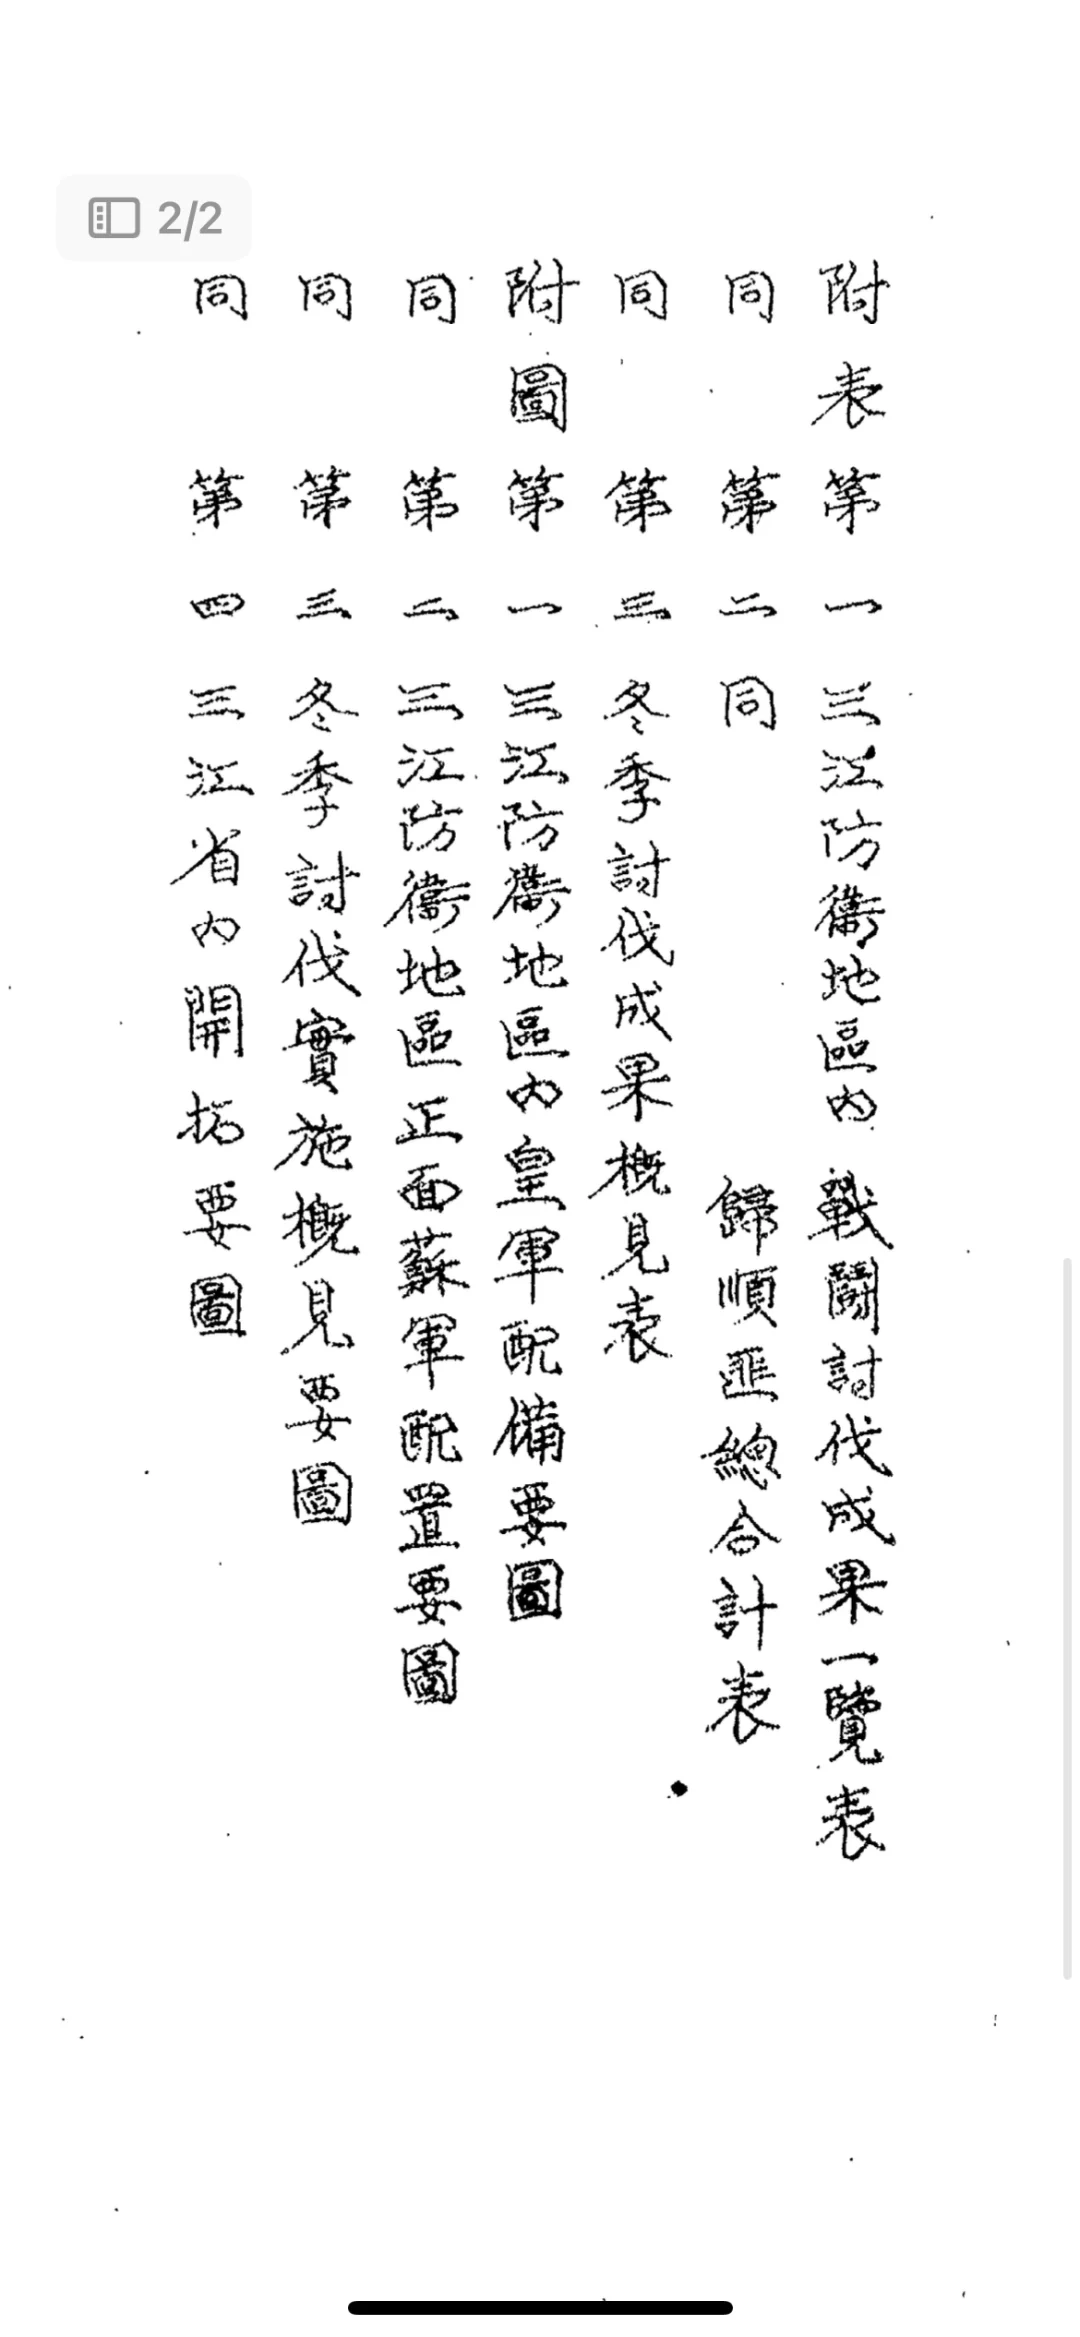 2/2
附表第一 三江防衞地區內 戰鬪討伐成果一覽表
同 第二 同 歸順匪總合計表
同 第三 冬季討伐成果概見表
附圖第一 三江防衞地區內皇軍配備要圖
同 第二 三江防衞地區正面蘇軍配置要圖
同 第三 冬季討伐實施概見要圖
同 第四 三江省內開拓要圖